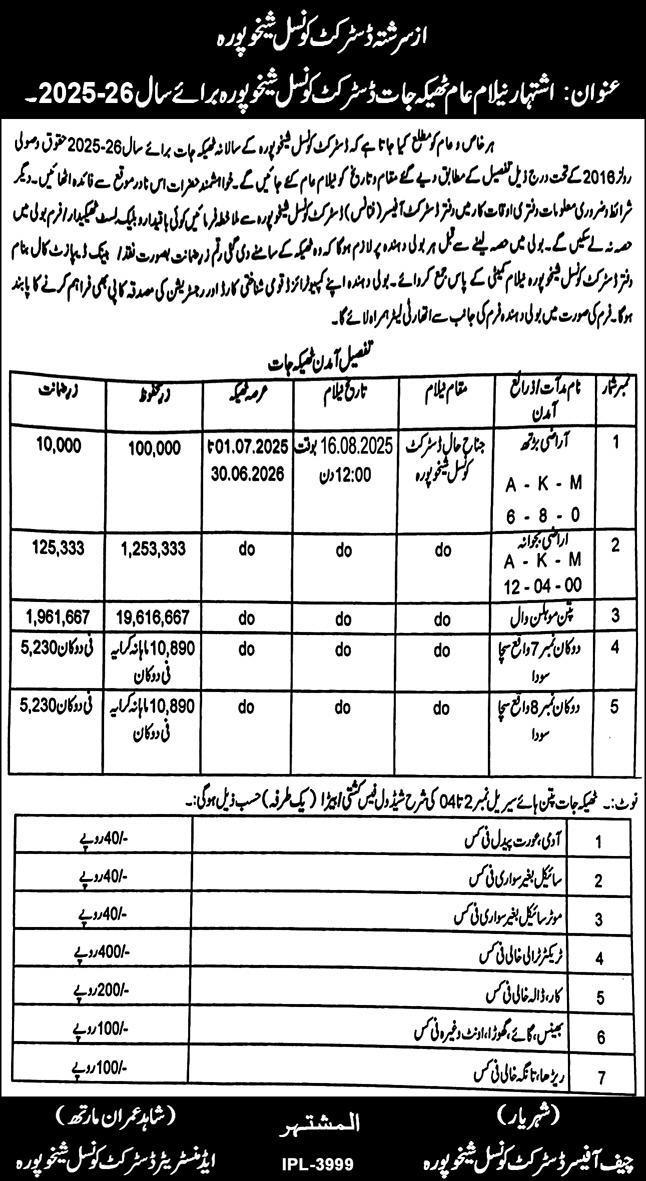 از سرشتہ ڈسٹرکٹ کونسل شیخوپورہ
عنوان: اشتہار نیلام عام ٹھیکہ جات ڈسٹرکٹ کونسل شیخوپورہ برائے سال 26-2025۔
ہر خاص و عام کو مطلع کیا جاتا ہے کہ ڈسٹرکٹ کونسل شیخوپورہ کے سالانہ ٹھیکہ جات برائے سال 26-2025 حقوق وصولی
رولز 2016 کے تحت درج ذیل تفصیل کے مطابق دیے گئے مقام و تاریخ کو نیلام عام کئے جائیں گے۔ خواہشمند حضرات اس نادر موقع سے فائدہ اٹھائیں۔ دیگر
شرائط و ضروری معلومات دفتری اوقات کار میں دفتر ڈسٹرکٹ آفیسر (فنانس) ڈسٹرکٹ کونسل شیخوپورہ سے ملاحظہ فرمائیں کوئی باقیدار و بلیک لسٹ ٹھیکیدار / فرم بولی میں
حصہ نہ لے سکیں گے۔ بولی میں حصہ لینے سے قبل ہر بولی دہندہ پر لازم ہوگا کہ وہ ٹھیکہ کے سامنے دی گئی رقم زرضمانت بصورت نقد / بینک ڈیپازٹ کال بنام
دفتر ڈسٹرکٹ کونسل شیخوپورہ نیلام کمیٹی کے پاس جمع کروائے۔ بولی دہندہ اپنے کمپیوٹرائزڈ قومی شناختی کارڈ اور رجسٹریشن کی مصدقہ کاپی بھی فراہم کرنے کا پابند
ہوگا۔ فرم کی صورت میں بولی دہندہ فرم کی جانب سے اتھارٹی لیٹر ہمراہ لائے گا۔
تفصیل آمدن ٹھیکہ جات
نمبر شمار نام مدآت / ذرائع آمدن مقام نیلام تاریخ نیلام عرصہ ٹھیکہ زرمحفوظ زرضمانت
1 آراضی A - K - M 6 - 8 - 0 جناح حال ڈسٹرکٹ کونسل شیخوپورہ 16.08.2025 بوقت 12:00 دن 01.07.2025 تا 30.06.2026 100,000 10,000
2 اراضی A - K - M 12 - 04 - 00 do do do 1,253,333 125,333
3 پتن موہلن وال do do do 19,616,667 1,961,667
4 دوکان نمبر 7 واقع سچا سودا do do do 10,890 ماہانہ کرایہ فی دوکان 5,230 فی دوکان
5 دوکان نمبر 8 واقع سچا سودا do do do 10,890 ماہانہ کرایہ فی دوکان 5,230 فی دوکان
نوٹ:۔ ٹھیکہ جات پتن ہائے سیریل نمبر 2 تا 04 کی شرح شیڈول فیس کشتی / بیڑا (یک طرفہ) حسب ذیل ہوگی:۔
1 آدمی، عورت پیدل فی کس 40/- روپے
2 سائیکل بغیر سواری فی کس 40/- روپے
3 موٹر سائیکل بغیر سواری فی کس 40/- روپے
4 ٹریکٹر ٹرالی خالی فی کس 400/- روپے
5 کار، ڈالہ خالی فی کس 200/- روپے
6 بھینس، گائے، گھوڑا، اونٹ وغیرہ فی کس 100/- روپے
7 ریڑھا، تانگہ خالی فی کس 100/- روپے
(شہریار)
چیف آفیسر ڈسٹرکٹ کونسل شیخوپورہ
المشتہر
IPL-3999
(شاہد عمران مارتھ)
ایڈمنسٹریٹر ڈسٹرکٹ کونسل شیخوپورہ